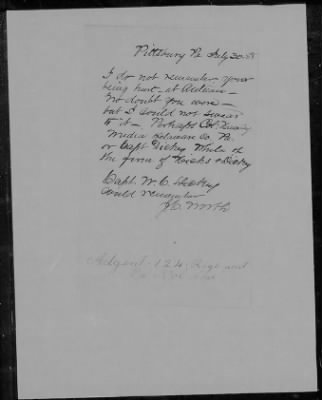 Pittsburg Pa July 20
I do not remember your
being hurt at
No doubt you were
but I could not swear
to it - Perhaps Col.
Media Delaware Co. Pa.
or Capt Dickey While of
the firm of Hicks & Dickey
Capt. W. C.
could remember
J C North
Adgent. 124. Regt and